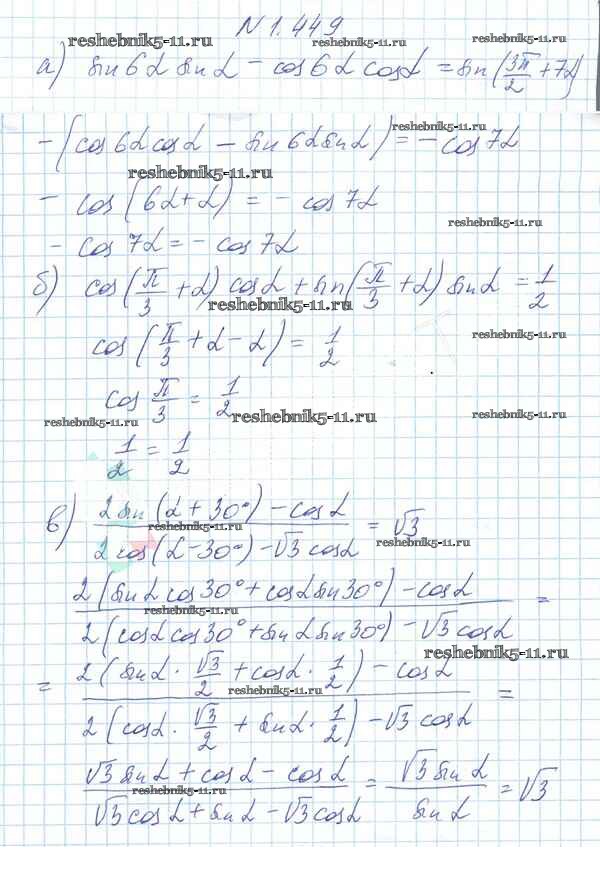 N 1.449
reshebnik5-11.ru
reshebnik5-11.ru
reshebnik5-11.ru
а) sin 6α sin α − cos 6α cos α = sin (3π/2 + 7α)
reshebnik5-11.ru
− (cos 6α cos α − sin 6α sin α) = − cos 7α
reshebnik5-11.ru
− cos (6α + α) = − cos 7α
reshebnik5-11.ru
− cos 7α = − cos 7α
б) cos (π/3 + α) cos α + sin (π/3 + α) sin α = 1/2
reshebnik5-11.ru
cos (π/3 + α − α) = 1/2
reshebnik5-11.ru
cos π/3 = 1/2
reshebnik5-11.ru
reshebnik5-11.ru
reshebnik5-11.ru
1/2 = 1/2
в) (2 sin (α + 30°) − cos α) / (2 cos (α − 30°) − √3 cos α) = √3
reshebnik5-11.ru
reshebnik5-11.ru
(2 (sin α cos 30° + cos α sin 30°) − cos α) / (2 (cos α cos 30° + sin α sin 30°) − √3 cos α) =
reshebnik5-11.ru
reshebnik5-11.ru
= (2 (sin α · √3/2 + cos α · 1/2) − cos α) / (2 (cos α · √3/2 + sin α · 1/2) − √3 cos α) =
reshebnik5-11.ru
(√3 sin α + cos α − cos α) / (√3 cos α + sin α − √3 cos α) = (√3 sin α) / (sin α) = √3
reshebnik5-11.ru